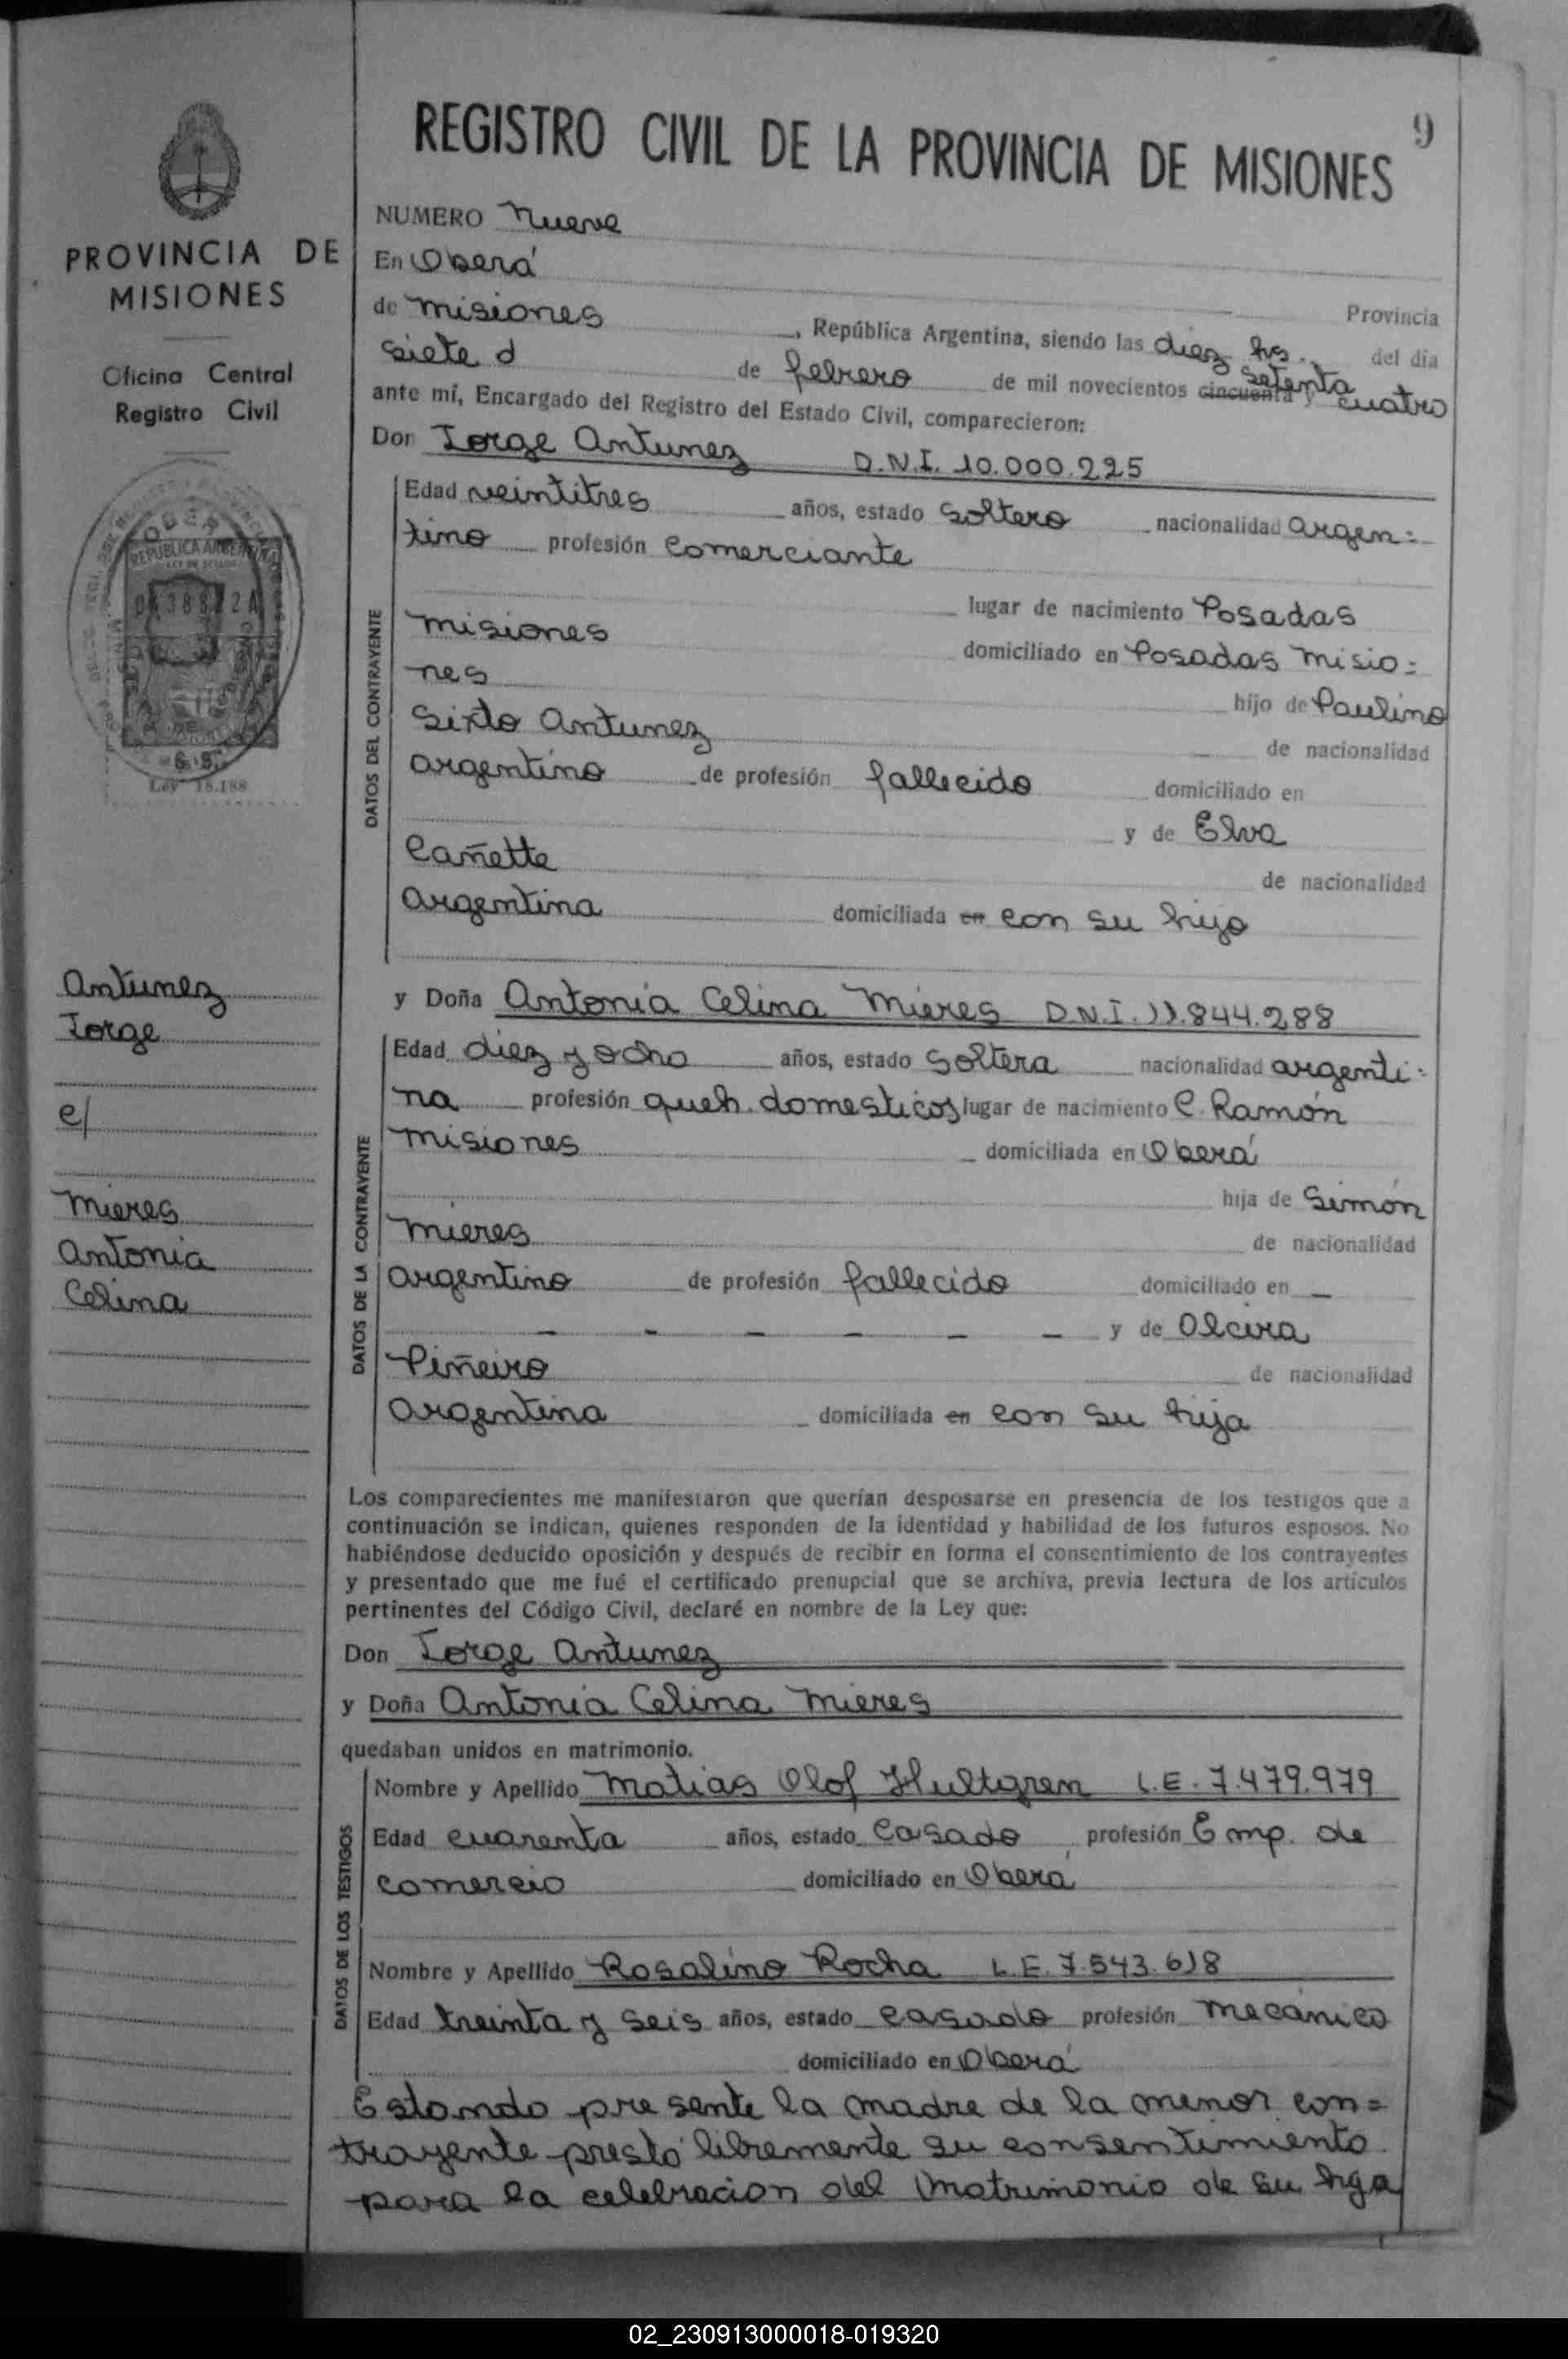 REGISTRO CIVIL DE LA PROVINCIA DE MISIONES
9
PROVINCIA DE
MISIONES
Oficina Central
Registro Civil
OBERA
REPUBLICA ARGENTINA
Ley 18.188
Antunez
Jorge
c/
Mieres
Antonia
Celina
NUMERO Nueve
En Oberá
Provincia
de Misiones, República Argentina, siendo las diez hs. del día
siete d de febrero de mil novecientos cincuenta y setenta cuatro
ante mí, Encargado del Registro del Estado Civil, comparecieron:
Don Jorge Antunez D.N.I. 10.000.225
DATOS DEL CONTRAYENTE
Edad veintitres años, estado soltero nacionalidad argen=
tino profesión comerciante
lugar de nacimiento Posadas
Misiones domiciliado en Posadas Misio=
nes hijo de Paulino
Sixto Antunez de nacionalidad
argentino de profesión fallecido domiciliado en
y de Elva
Cañette de nacionalidad
argentina domiciliada en con su hijo
y Doña Antonia Celina Mieres D.N.I. 11.844.288
DATOS DE LA CONTRAYENTE
Edad diez y ocho años, estado soltera nacionalidad argenti=
na profesión queh. domesticos lugar de nacimiento C. Ramón
Misiones domiciliada en Oberá
hija de Simón
Mieres de nacionalidad
argentino de profesión fallecido domiciliado en —
— — — — — — y de Olcira
Piñeiro de nacionalidad
argentina domiciliada en con su hija
Los comparecientes me manifestaron que querían desposarse en presencia de los testigos que a
continuación se indican, quienes responden de la identidad y habilidad de los futuros esposos. No
habiéndose deducido oposición y después de recibir en forma el consentimiento de los contrayentes
y presentado que me fué el certificado prenupcial que se archiva, previa lectura de los artículos
pertinentes del Código Civil, declaré en nombre de la Ley que:
Don Jorge Antunez
y Doña Antonia Celina Mieres
quedaban unidos en matrimonio.
DATOS DE LOS TESTIGOS
Nombre y Apellido Matias Olof Hultgren L.E. 7.479.979
Edad cuarenta años, estado casado profesión Emp. de
comercio domiciliado en Oberá
Nombre y Apellido Rosalino Rocha L.E. 7.543.618
Edad treinta y seis años, estado casado profesión mecánico
domiciliado en Oberá
Estando presente la madre de la menor con=
trayente prestó libremente su consentimiento
para la celebracion del matrimonio de su hija
02_230913000018-019320